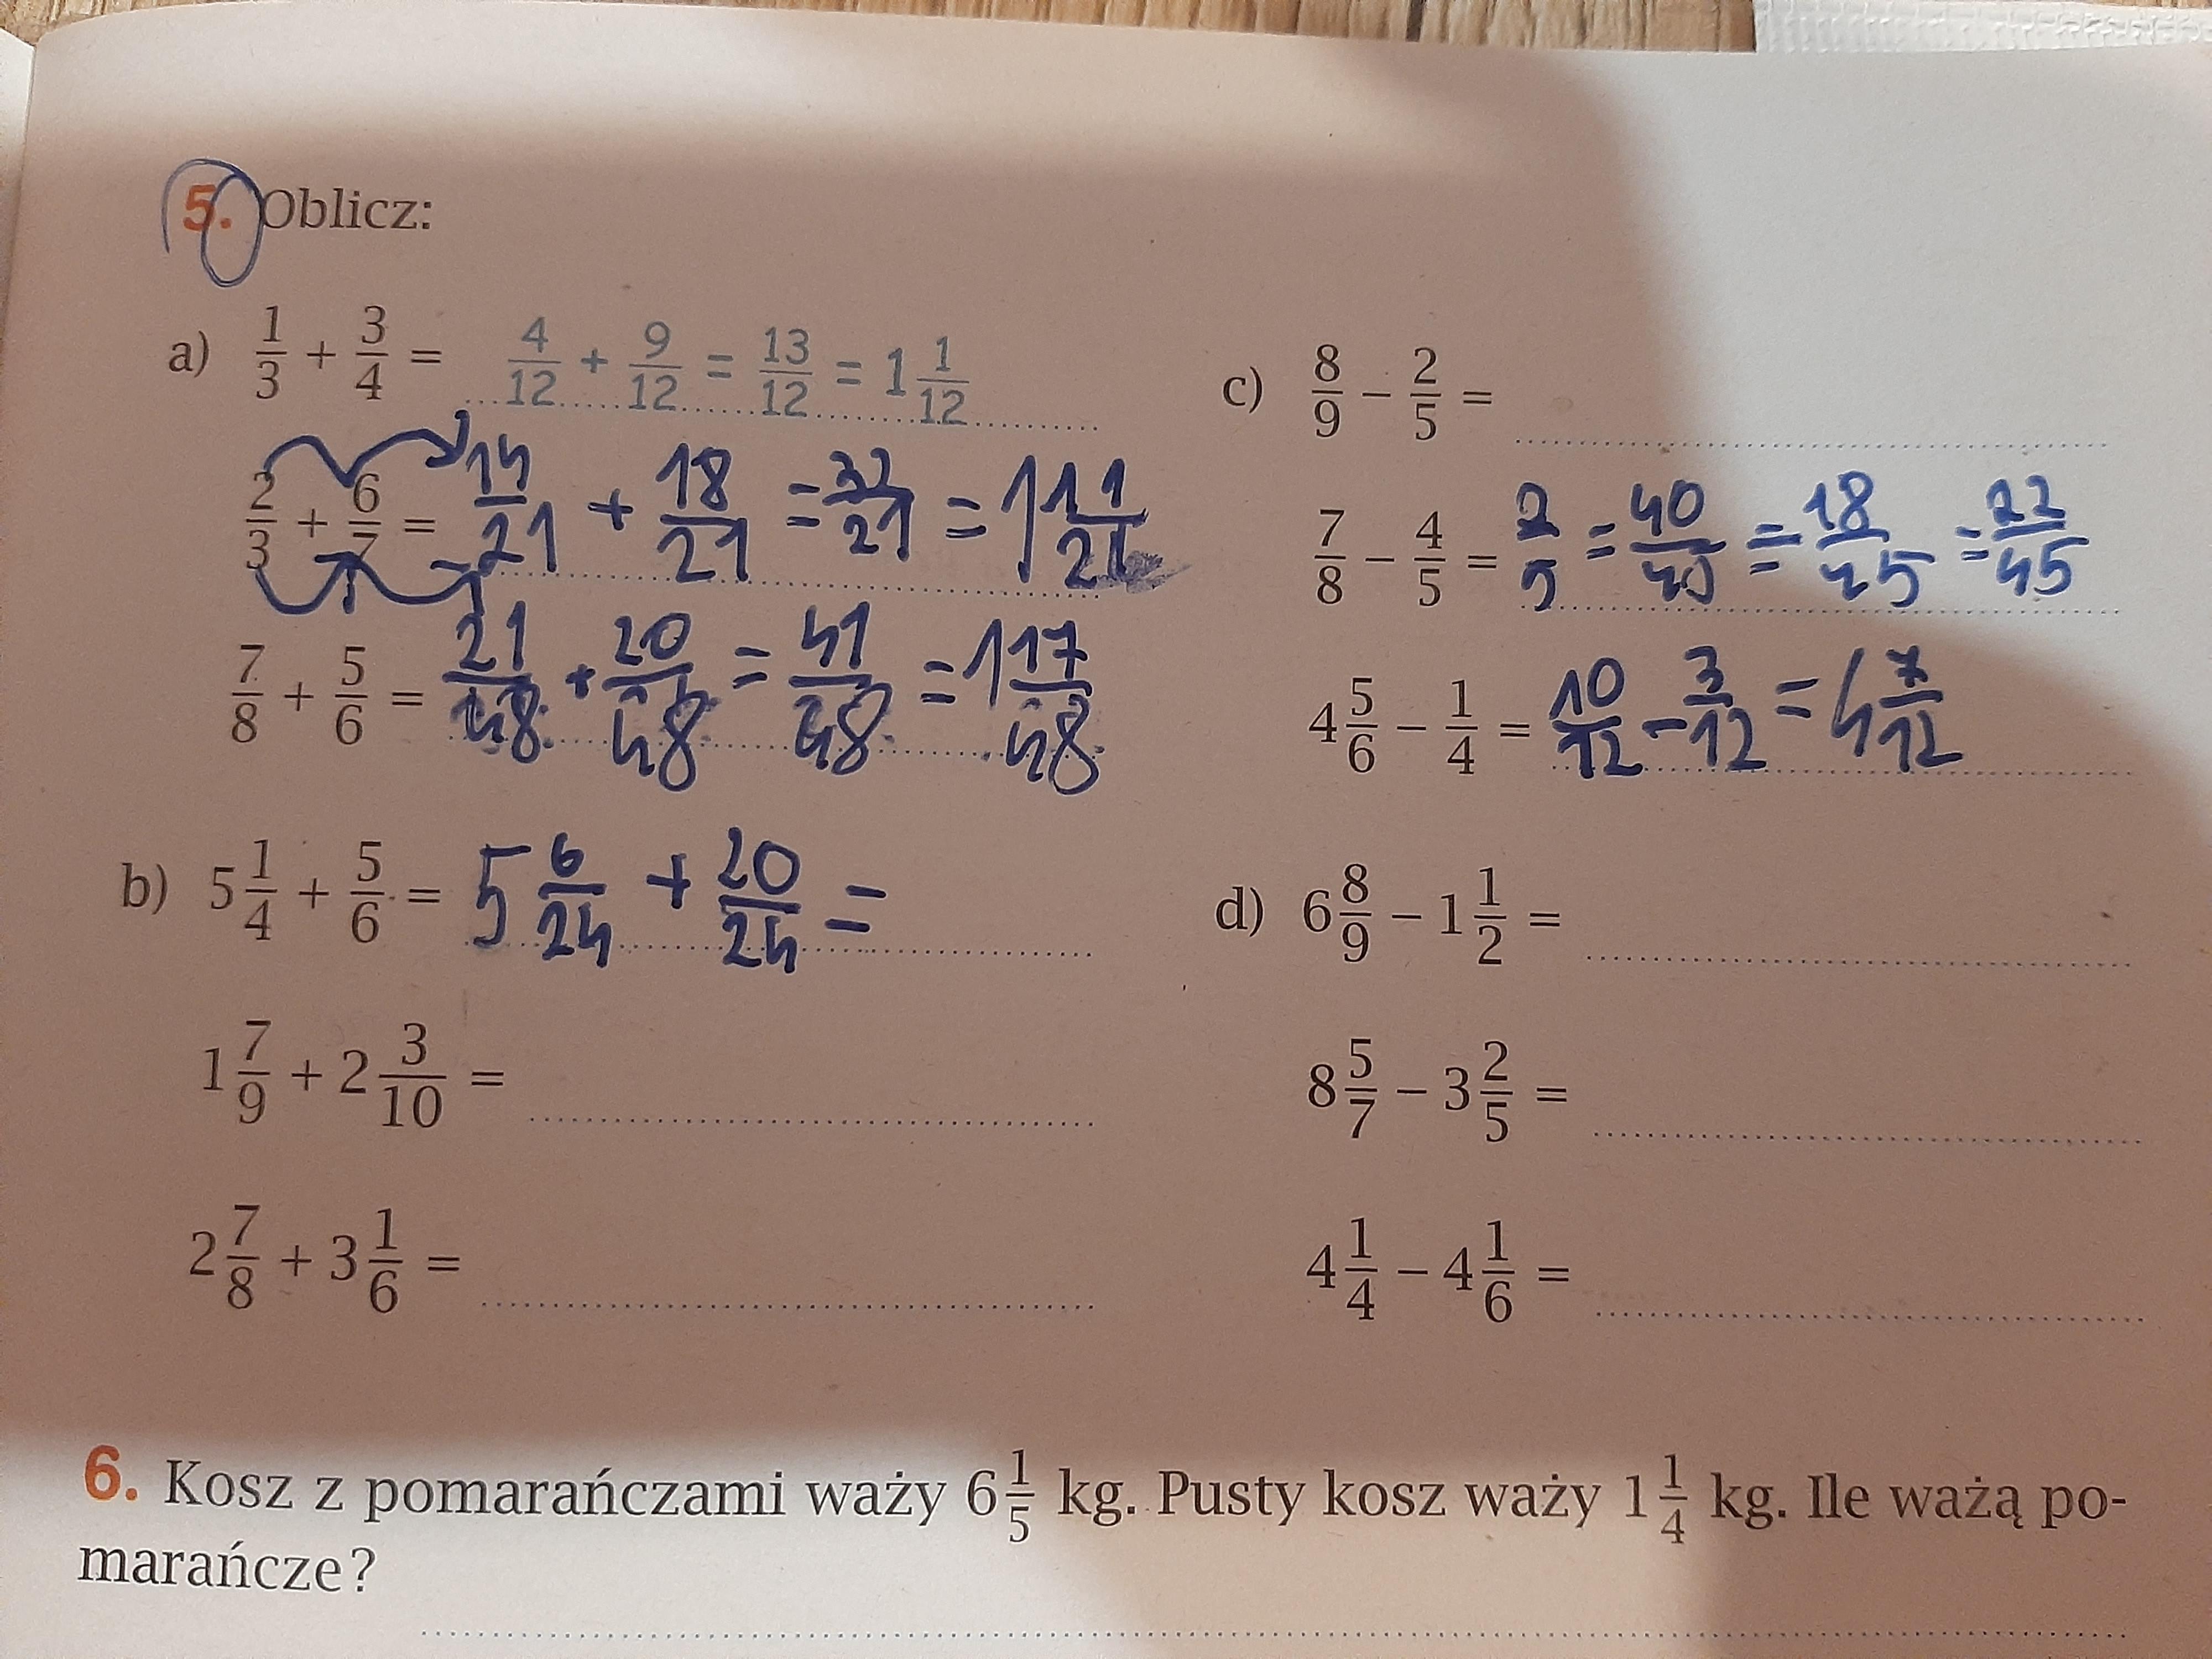 5. Oblicz:
a) 1/3 + 3/4 = 4/12 + 9/12 = 13/12 = 1 1/12
2/3 + 6/7 = 14/21 + 18/21 = 32/21 = 1 11/21
7/8 + 5/6 = 21/48 + 20/48 = 41/48 = 1 17/48
b) 5 1/4 + 5/6 = 5 6/24 + 20/24 =
1 7/9 + 2 3/10 =
2 7/8 + 3 1/6 =
c) 8/9 − 2/5 =
7/8 − 4/5 = 2/5 = 40/45 = 18/45 = 22/45
4 5/6 − 1/4 = 10/12 − 3/12 = 4 7/12
d) 6 8/9 − 1 1/2 =
8 5/7 − 3 2/5 =
4 1/4 − 4 1/6 =
6. Kosz z pomarańczami waży 6 1/5 kg. Pusty kosz waży 1 1/4 kg. Ile ważą po-
marańcze?